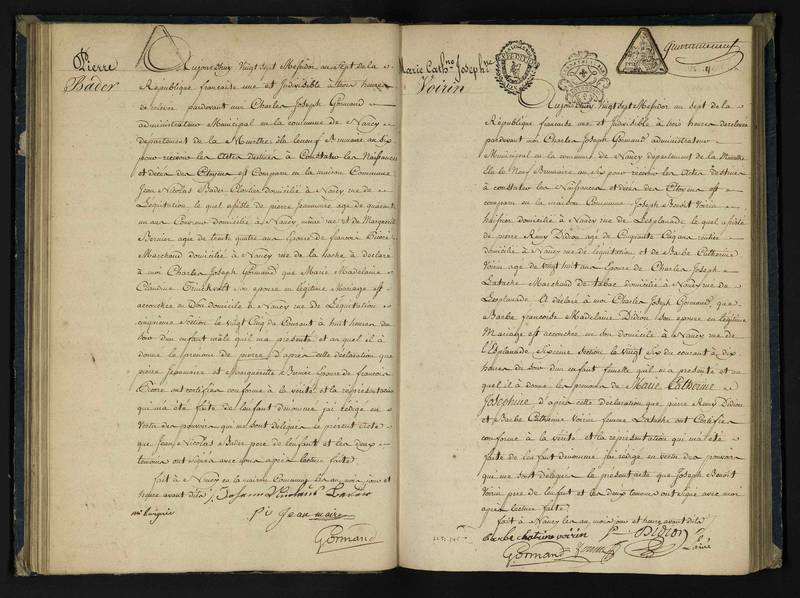 Pierre
Bader
Aujourdhuy Vingt Sept Messidor an Sept de la
République francaise une et Indivisible à trois heures
de relevée pardevant moi Charles Joseph Gormand
administrateur Municipal de la commune de Nancy
departement de la Meurthe élu le neuf Brumaire an Six
pour recevoir les actes destinés à Constater les Naissances
et décès des Citoyens est Comparu en la maison Commune
Jean Nicolas Bader domicilié à Nancy rue de
Législation, le quel assisté de pierre Jeanmaire agé de quarante
un ans domicilié à Nancy, même rue et de Marguerite
Bernier agée de trente quatre ans Epouse de francois Dicoré
Marchand domicilié à Nancy rue de la hache à déclaré
à moi Charles Joseph Gormand que Marie Madelaine
Claudine son epouse en légitime Mariage est
accouchée en Son domicile à Nancy rue de Législation
cinquieme Section le Vingt Cinq du Courant à huit heures du
Soir d'un enfant mâle qu'il m'a présenté et au quel il à
donné le prenom de pierre d'après cette déclaration que
pierre Jeanmaire et Margueritte Bernier Epouse de francois
Dicoré ont certifiée conforme à la vérité et la représentation
qui m'a été faite de l'enfant dénommé j'ai rédigé en
Vertu des pouvoirs qui me sont délégués le présent acte
que Jean Nicolas Bader pere de l'enfant et les deux
temoins ont signés avec nous après lecture faite
fait à Nancy en la maison commune les an mois jour et
heure avant dits
Pi Jean maire
Gormand
Marie Cathne Josephne
Voirin
Aujourdhuy Vingt Sept Messidor an sept de la
République francaise une et Indivisible à trois heures de relevée
pardevant moi Charles Joseph Gormand administrateur
Municipal en la commune de Nancy departement de la Meurthe
élu le Neuf Brumaire an Six pour recevoir les actes destinés
à constater les Naissances et décès des Citoyens est
comparu en la maison Commune Joseph Benoit Voirin
domicilié à Nancy rue de Lesplanade le quel assisté
de pierre Remy Didion agé de Cinquante Cinq ans rentier
domicilié à Nancy rue de législation et de Barbe Catherine
Voirin agé de vingt huit ans Epouse de Charles Joseph
Latache Marchand de tabac domicilié à Nancy rue de
Lesplanade A déclaré à moi Charles Joseph Gormand, que
Barbe francoise Madelaine Didion Son epouse en légitime
Mariage est accouchée en son domicile à Nancy rue de
l'Esplanade Sixieme Section le vingt Six du courant à dix
heures du Soir d'un enfant femelle qu'il m'a présenté et au
quel il à donné les prenoms de Marie Catherine
Josephine d'après cette déclaration que pierre Remy Didion
et Barbe Catherine Voirin femme Latache ont Certifiée
conforme à la vérité et la représentation qui m'a été
faite de l'enfant dénommé j'ai rédigé en vertu des pouvoirs
qui me sont délégués le présent acte que Joseph Benoit
Voirin pere de l'enfant et les deux temoins ont signé avec moi
après lecture faite
fait à Nancy les an mois jour et heure avant dits
Barbe Catrine voirin Pr Didion
Gormand